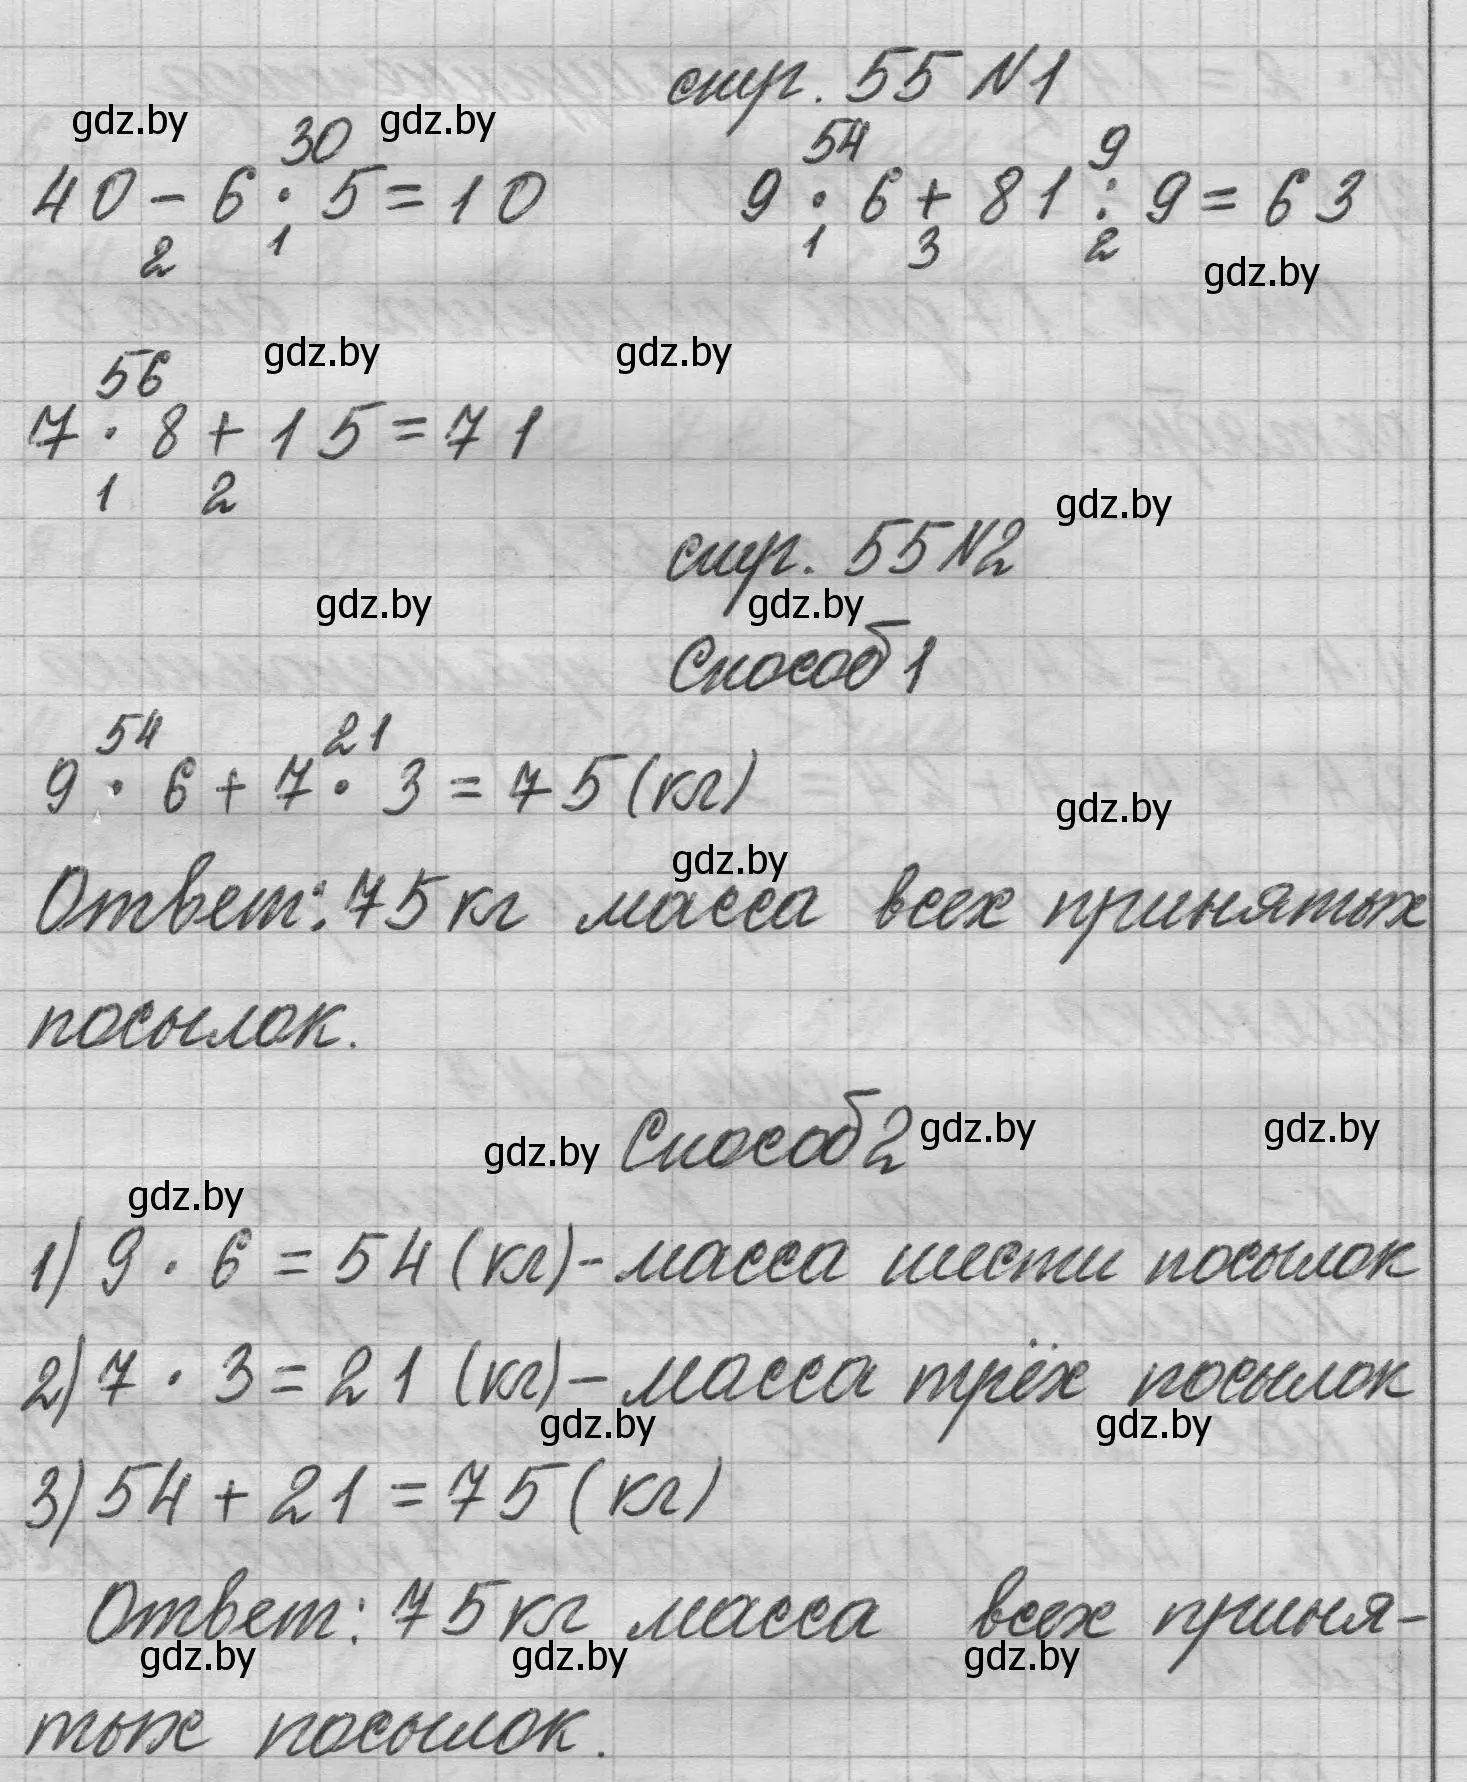 стр. 55 №1
gdz.by gdz.by
30 54 9
40 - 6 · 5 = 10 9 · 6 + 81 : 9 = 63
2 1 1 3 2
gdz.by
56 gdz.by gdz.by
7 · 8 + 15 = 71
1 2
gdz.by
стр. 55 №2
gdz.by gdz.by
Способ 1
54 21
9 · 6 + 7 · 3 = 75 (кг)
gdz.by
gdz.by
Ответ: 75 кг масса всех принятых
посылок.
gdz.by Способ 2 gdz.by gdz.by
gdz.by
1) 9 · 6 = 54 (кг) - масса шести посылок
2) 7 · 3 = 21 (кг) - масса трёх посылок
gdz.by gdz.by
3) 54 + 21 = 75 (кг)
Ответ: 75 кг масса всех приня-
gdz.by gdz.by gdz.by
тых посылок.